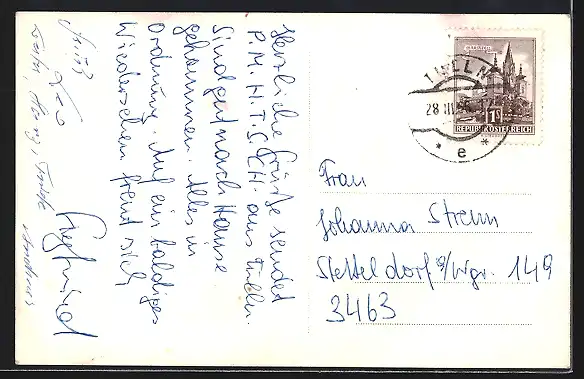 Herzliche Grüße sendet
P.M.H.T.S.E.H. aus Tulln.
Sind gut nach Hause
gekommen. Alles in
Ordnung. Auf ein baldiges
Wiedersehen freut sich
Siegfried
Leo
TULLN
28. III. 66
e
REPUBLIK ÖSTERREICH
1S
Frau
Johanna Strenn
Stetteldorf a/Wgr. 149
3463